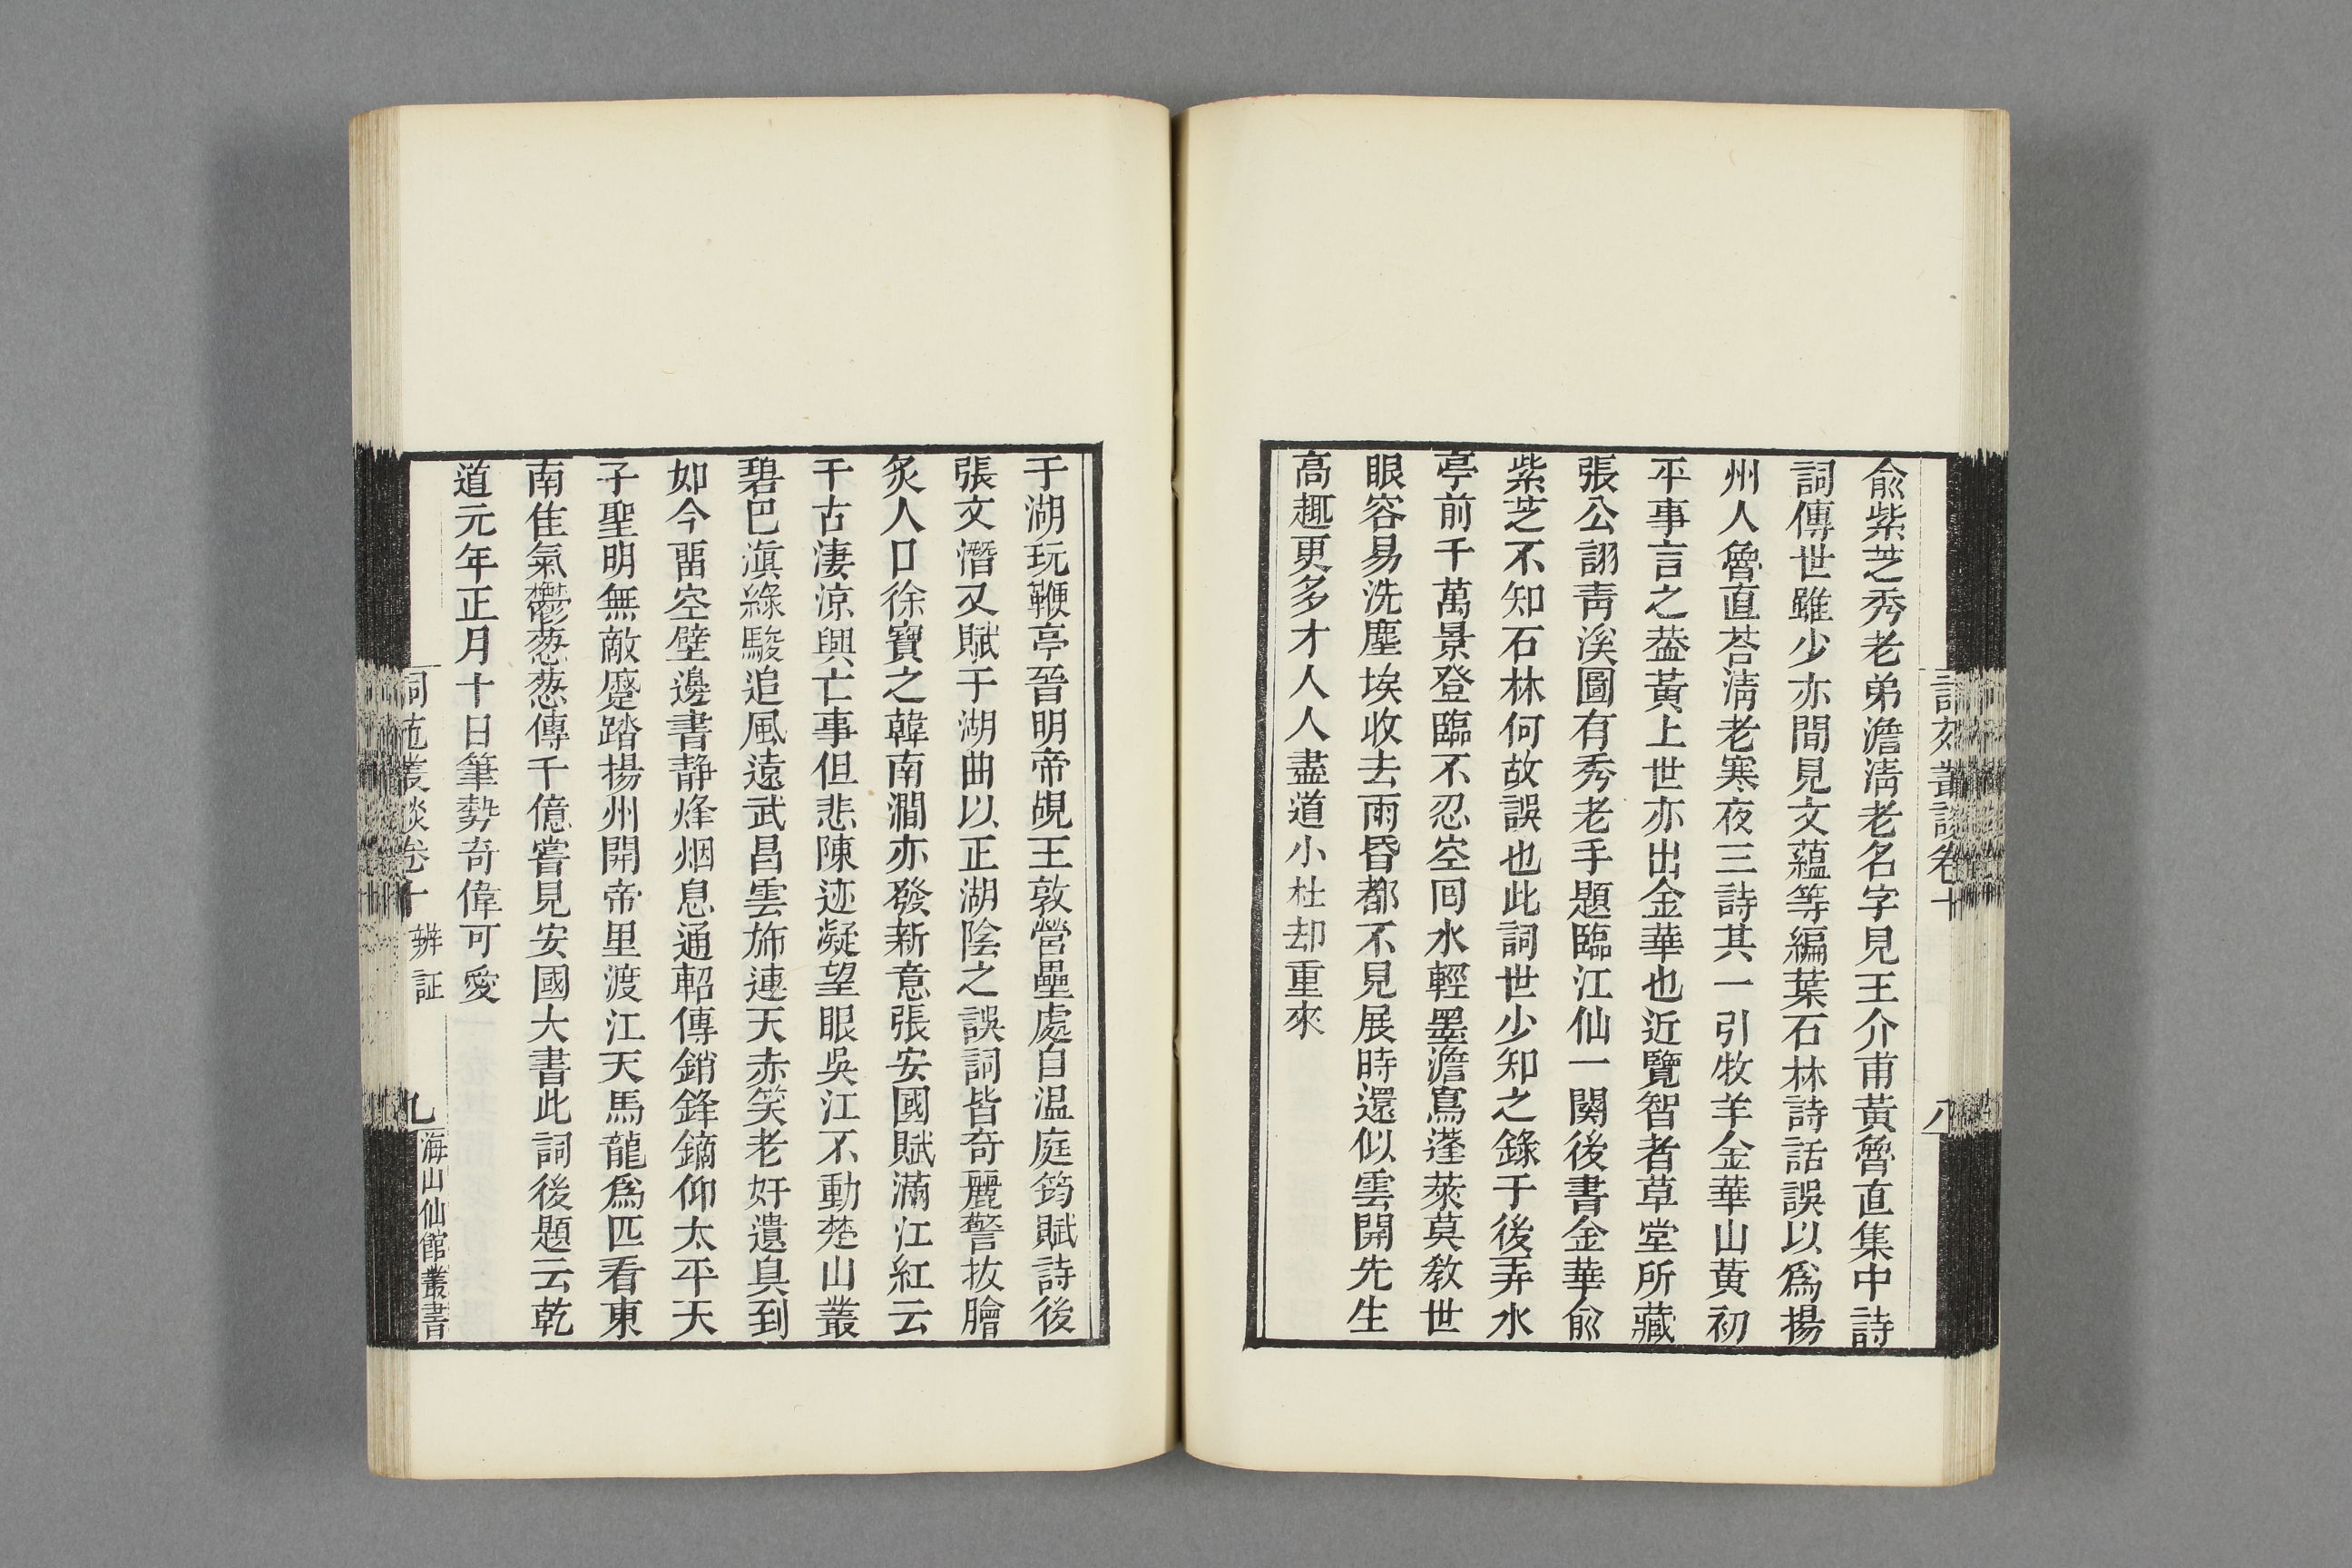 俞紫芝秀老弟澹淸老名字見王介甫黃魯直集中詩
詞傳世雖少亦間見文蘊等編葉石林詩話誤以爲揚
州人魯直荅淸老寒夜三詩其一引牧羊金華山黃初
平事言之葢黃上世亦出金華也近覽智者草堂所藏
張公詡靑溪圖有秀老手題臨江仙一闋後書金華俞
紫芝不知石林何故誤也此詞世少知之錄于後弄水
亭前千萬景登臨不忍空囘水輕墨澹寫蓬萊莫敎世
眼容易洗塵埃收去雨昏都不見展時還似雲開先生
高趣更多才人人盡道小杜却重來
八
于湖玩鞭亭晉明帝覘王敦營壘處自温庭筠賦詩後
張文潛又賦于湖曲以正湖陰之誤詞皆奇麗警拔膾
炙人口徐寶之韓南澗亦發新意張安國賦滿江紅云
千古淒涼興亡事但悲陳迹凝望眼吳江不動楚山叢
碧巴滇綠駿追風遠武昌雲旆連天赤笑老奸遺臭到
如今畱空壁邊書静烽烟息通軺傳銷鋒鏑仰太平天
子聖明無敵蹙踏揚州開帝里渡江天馬龍爲匹看東
南隹氣鬱葱葱傳千億嘗見安國大書此詞後題云乾
道元年正月十日筆勢奇偉可愛
詞苑叢談卷十 辨証 九 海山仙館叢書